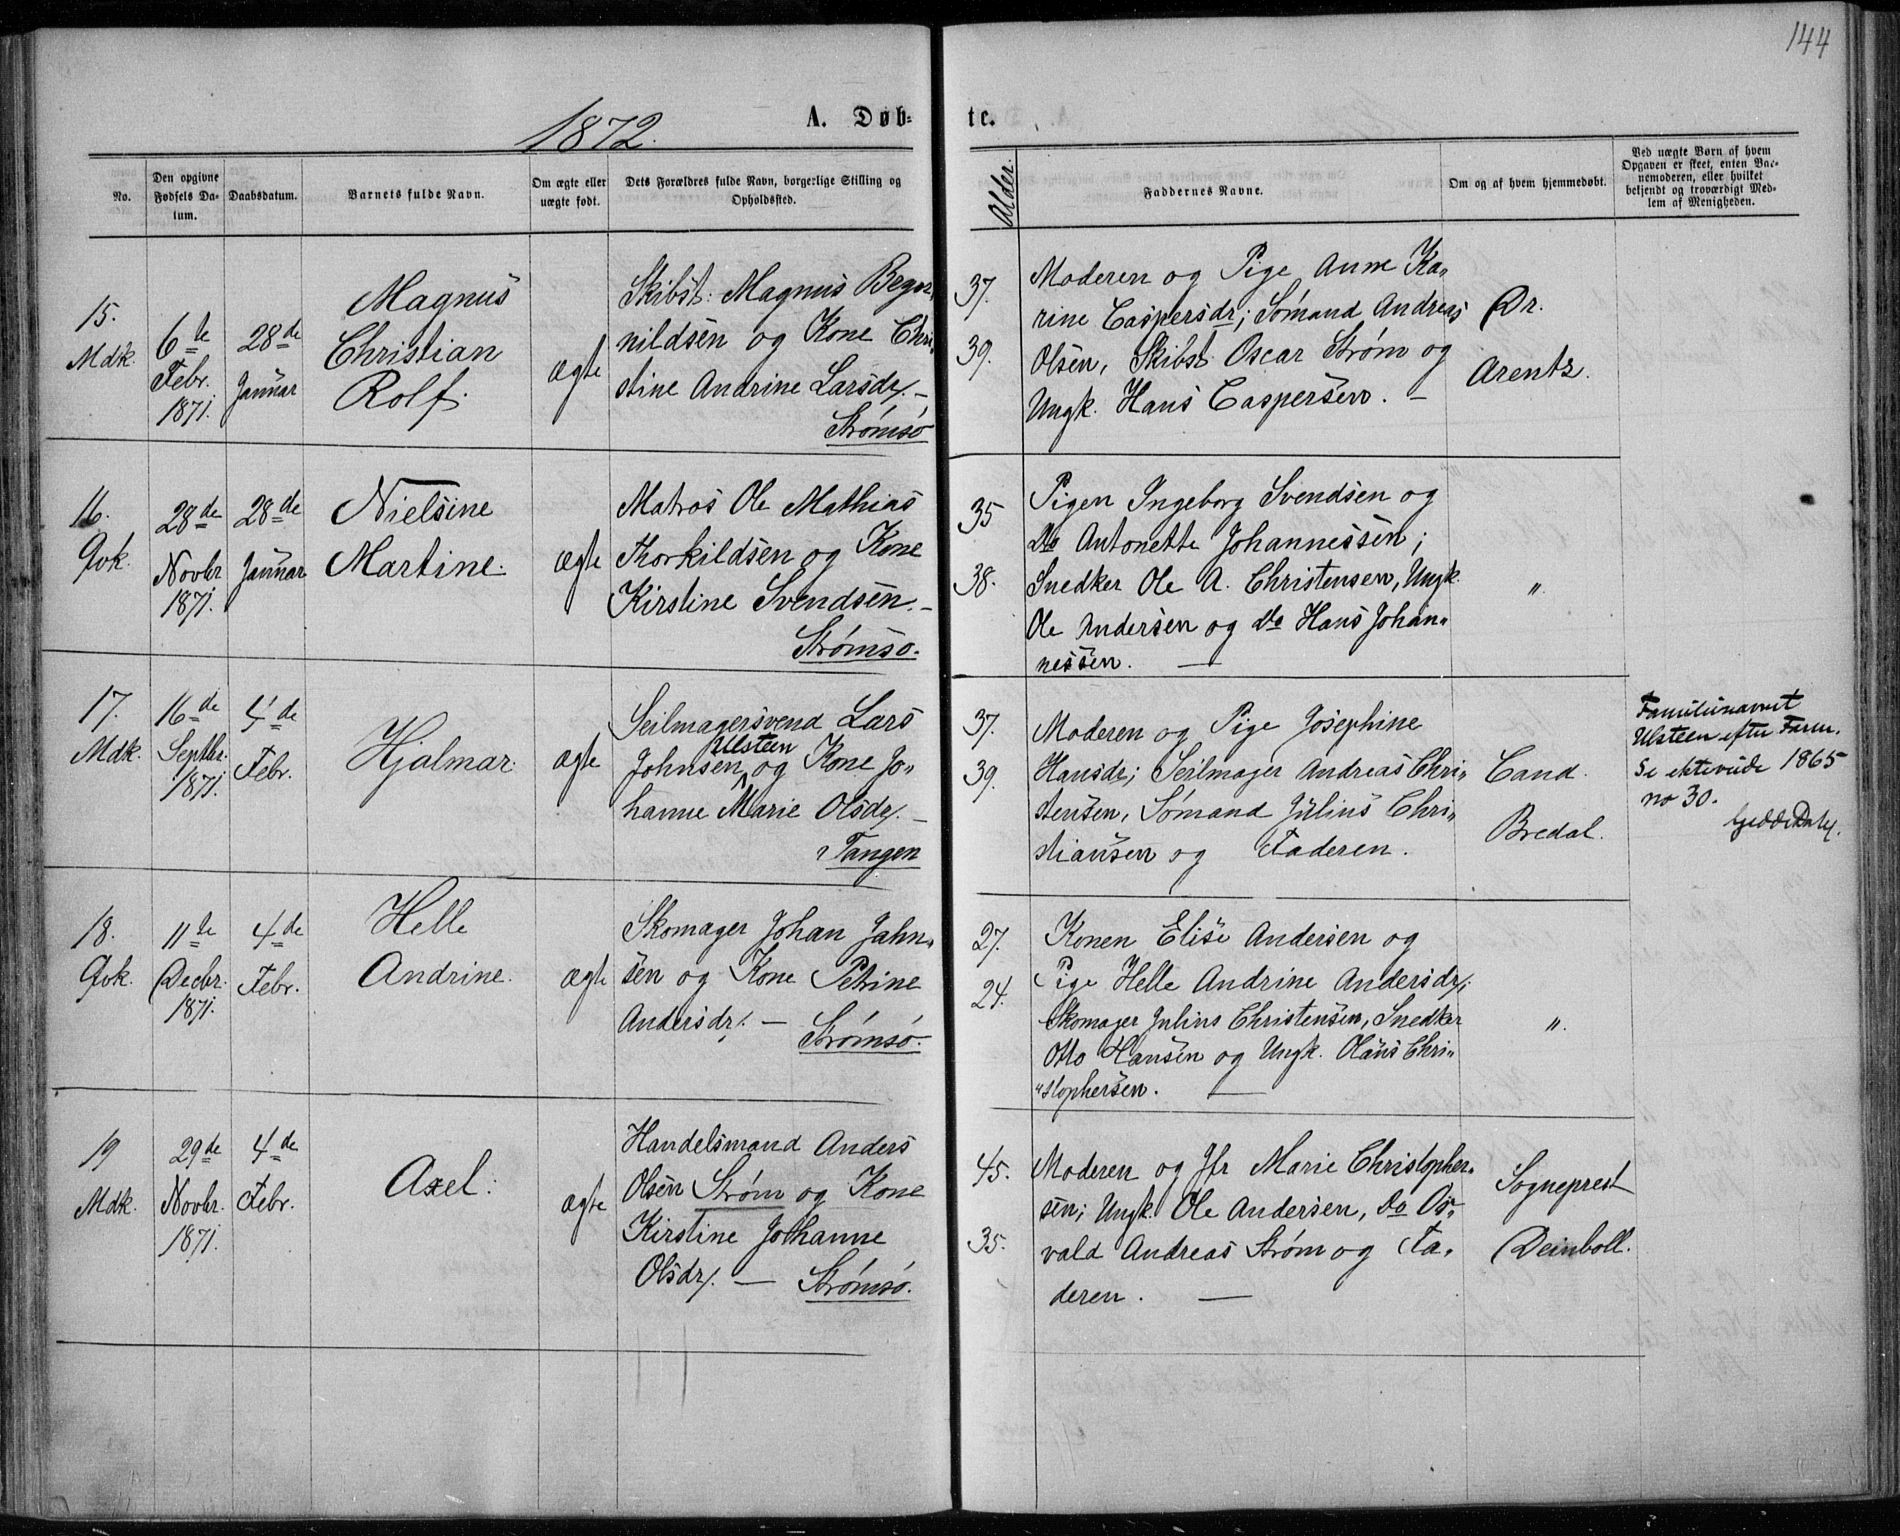 144
1872.
A. Døb-
te.
No.
Den opgivne
Fødsels Da-
tum.
Daabsdatum.
Barnets fulde Navn.
Om ægte eller
uægte født.
Dets Forældres fulde Navn, borgerlige Stilling og
Opholdssted.
Alder.
Faddernes Navne.
Om og af hvem hjemmedøbt.
Ved uægte Børn af hvem
Opgaven er skeet, enten Bar-
nemoderen, eller hvilket
bekjendt og troværdigt Med-
lem af Menigheden.
15.
Mdk.
6te
Febr.
1871.
28de
Januar
Magnus
Christian
Rolf.
ægte
Skibst: Magnus Begn-
nildsen og Kone Chri-
stine Andrine Larsdr. –
Strømsø
37.
39.
Moderen og Pige Anne Ka-
rine Caspersdr; Sømand Andreas
Olsen, Skibst. Oscar Strøm og
Ungk. Hans Caspersen. –
Dr.
Arentz.
16.
Qvk.
28de
Novbr
1871.
28de
Januar
Nielsine
Martine.
ægte
Matros Ole Mathias
Thorkildsen og Kone
Kirstine Svendsen. –
Strømsø.
35
38.
Pigen Ingeborg Svendsen og
Do Antonette Johannessen;
Snedker Ole A. Christensen, Ungk.
Ole Andersen og Do Hans Johan-
nessen. —
".
17.
Mdk.
16de
Septbr.
1871.
4de
Febr.
Hjalmar.
ægte
Seilmagersvend Lars
Ulsteen
Johnsen og Kone Jo-
hanne Marie Olsdr. –
Tangen
37.
39.
Moderen og Pige Josephine
Hansdr; Seilmager Andreas Chri-
stensen, Sømand Julius Chri-
stiansen og Faderen.
Cand.
Bredal.
Familienavnet
Ulsteen efter Farm.
Se ektevide 1865
no 30.
18.
Qvk.
11te
Decbr.
1871.
4de
Febr.
Helle
Andrine.
ægte
Skomager Johan Jahn-
sen og Kone Petrine
Andersdr. —
Strømsø.
27.
24.
Konen Elise Andersen og
Pige Helle Andrine Andersdr;
Skomager Julius Christensen, Snedker
Otto Hansen og Ungk. Hans Chri-
stophersen. —
".
19
Mdk.
29de
Novbr.
1871.
4de
Febr.
Axel.
ægte
Handelsmand Anders
Olsen Strøm og Kone
Kirstine Johanne
Olsdr. — Strømsø.
45.
35.
Moderen og Jfr Marie Christopher-
sen; Ungk. Ole Andersen, Do Os-
vald Andreas Strøm og Fa-
deren. —
Sogneprest
Deinboll.